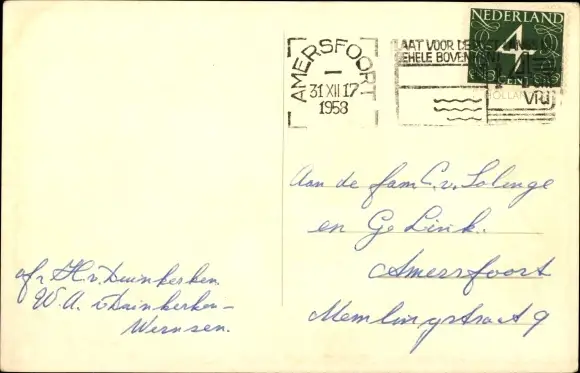 NEDERLAND
4
CENT
AMERSFOORT
31 XII 17
1958
AAT VOOR DE
EHELE BOVEN
VRIJ
Aan de fam C. v. Solinge
en G. Link.
Amersfoort
Memlingstraat 9
afz H. v. Duinkerken.
W. A. v Duinkerken-
Wernsen.